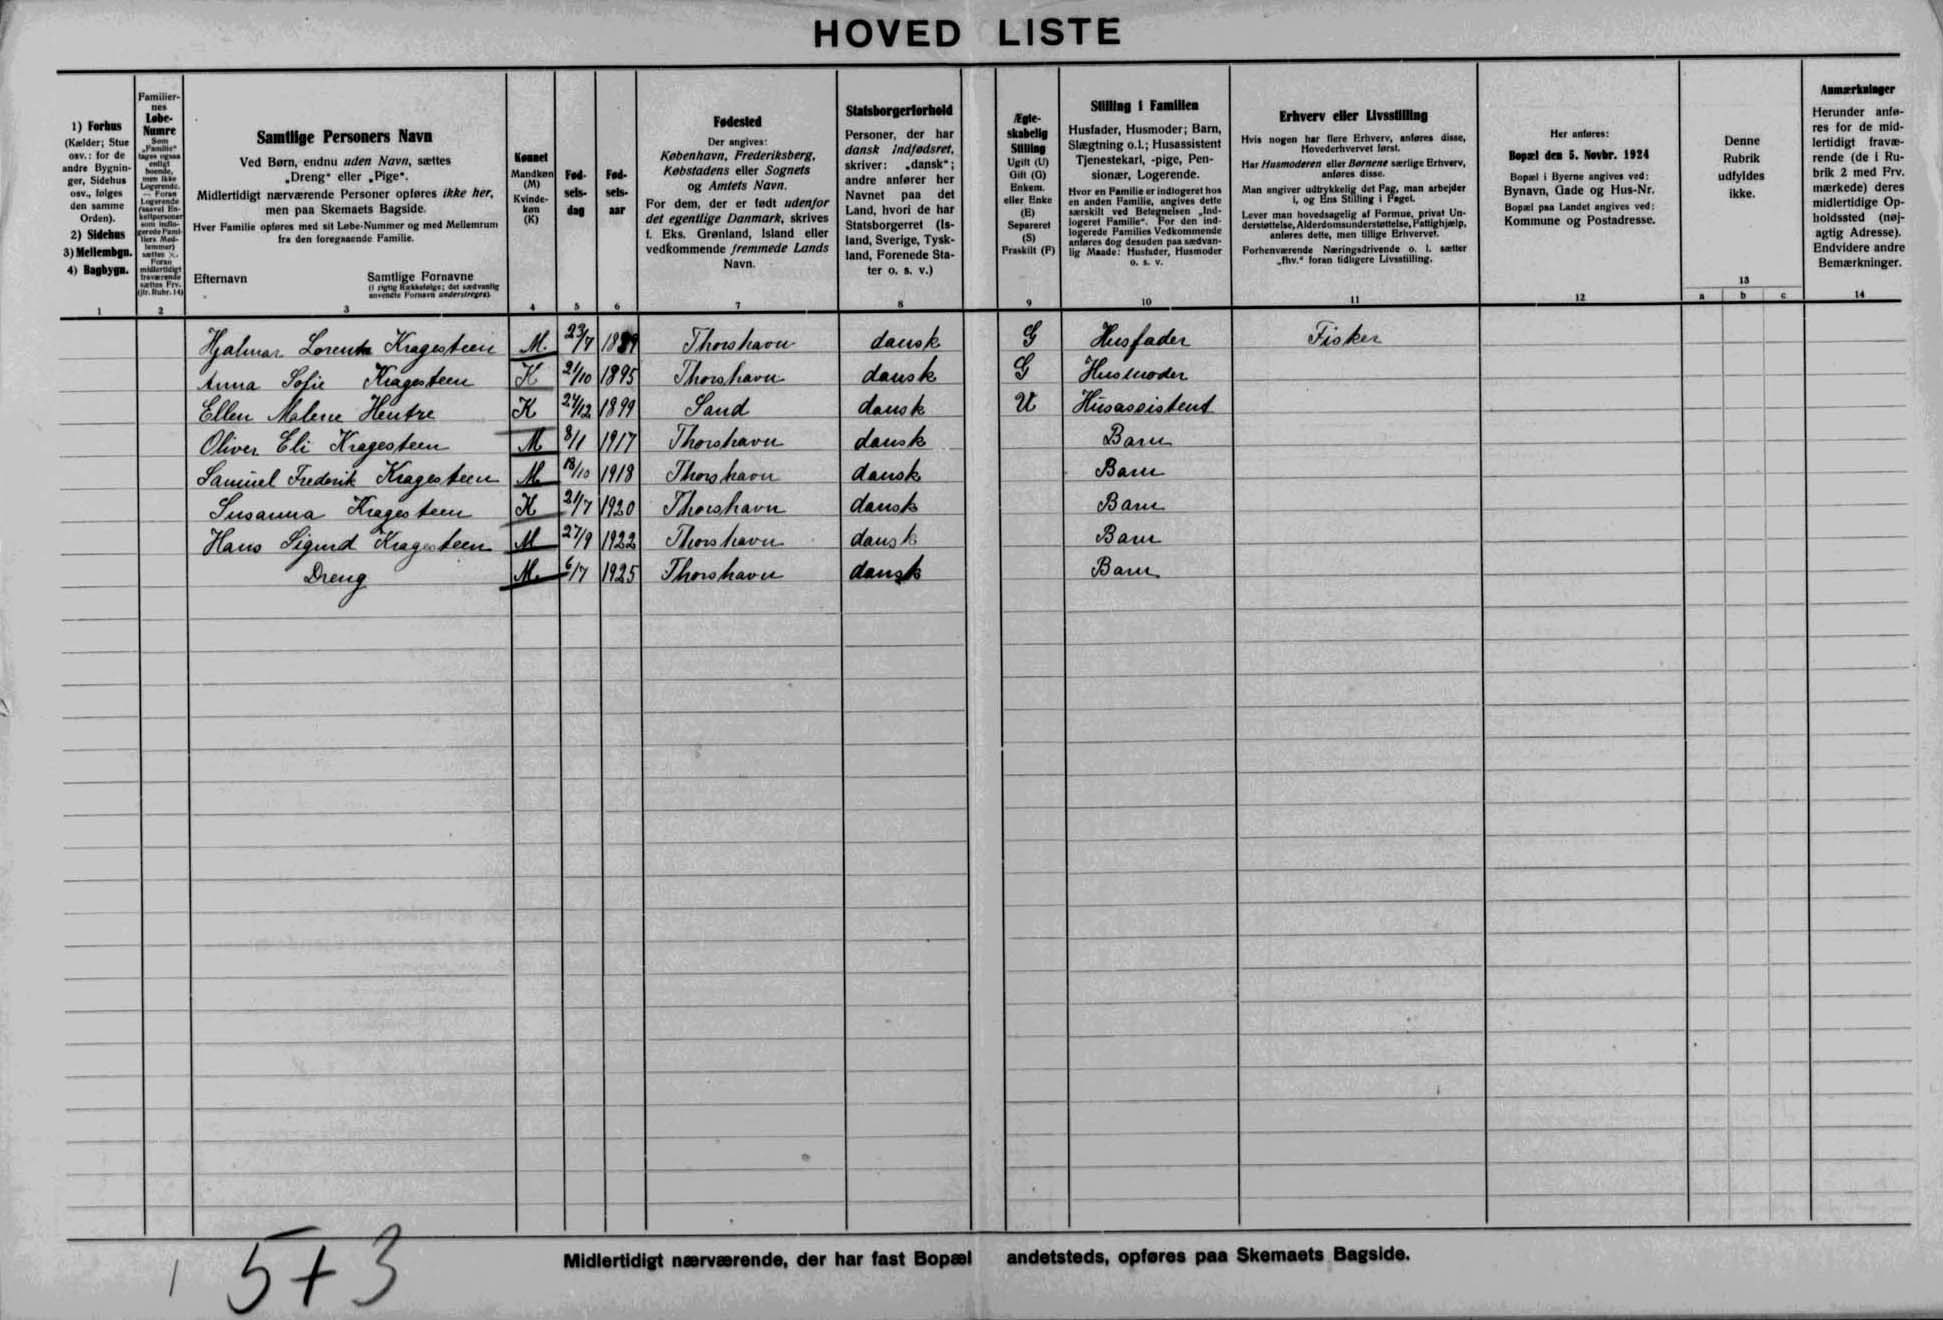 HOVED LISTE
1) Forhus
(Kælder; Stue
osv.: for de
andre Bygnin-
ger, Sidehus
osv., følges
den samme
Orden).
2) Sidehus
3) Mellembgn.
4) Bagbygn.
1
Familier-
nes
Løbe-
Numre
Som
„Familie"
tages ogsaa
enligt
boende,
men ikke
Logerende.
— Foran
Logerende
(saavel En-
keltpersoner
som indlo-
gerede Fami-
liers Med-
lemmer)
sættes ×.
Foran
midlertidigt
fraværende
sættes Frv.
(jfr. Rubr. 14)
2
Samtlige Personers Navn
Ved Børn, endnu uden Navn, sættes
„Dreng" eller „Pige".
Midlertidigt nærværende Personer opføres ikke her,
men paa Skemaets Bagside.
Hver Familie opføres med sit Løbe-Nummer og med Mellemrum
fra den foregaaende Familie.
Efternavn
Samtlige Fornavne
(i rigtig Rækkefølge; det sædvanlig
anvendte Fornavn understreges).
3
Kønnet
Mandkøn
(M)
Kvinde-
køn
(K)
4
Fød-
sels-
dag
5
Fød-
sels-
aar
6
Fødested
Der angives:
København, Frederiksberg,
Købstadens eller Sognets
og Amtets Navn.
For dem, der er født udenfor
det egentlige Danmark, skrives
f. Eks. Grønland, Island eller
vedkommende fremmede Lands
Navn.
7
Statsborgerforhold
Personer, der har
dansk Indfødsret,
skriver: „dansk";
andre anfører her
Navnet paa det
Land, hvori de har
Statsborgerret (Is-
land, Sverige, Tysk-
land, Forenede Sta-
ter o. s. v.)
8
Ægte-
skabelig
Stilling
Ugift (U)
Gift (G)
Enkem.
eller Enke
(E)
Separeret
(S)
Fraskilt (F)
9
Stilling i Familien
Husfader, Husmoder; Barn,
Slægtning o.l.; Husassistent
Tjenestekarl, -pige, Pen-
sionær, Logerende.
Hvor en Familie er indlogeret hos
en anden Familie, angives dette
særskilt ved Betegnelsen „Ind-
logeret Familie". For den ind-
logerede Families Vedkommende
anføres dog desuden paa sædvan-
lig Maade: Husfader, Husmoder
o. s. v.
10
Erhverv eller Livsstilling
Hvis nogen har flere Erhverv, anføres disse,
Hovederhvervet først.
Har Husmoderen eller Børnene særlige Erhverv,
anføres disse.
Man angiver udtrykkelig det Fag, man arbejder
i, og Ens Stilling i Faget.
Lever man hovedsagelig af Formue, privat Un-
derstøttelse, Alderdomsunderstøttelse, Fattighjælp,
anføres dette, men tillige Erhvervet.
Forhenværende Næringsdrivende o. l. sætter
„fhv." foran tidligere Livsstilling.
11
Her anføres:
Bopæl den 5. Novbr. 1924
Bopæl i Byerne angives ved:
Bynavn, Gade og Hus-Nr.
Bopæl paa Landet angives ved:
Kommune og Postadresse.
12
Denne
Rubrik
udfyldes
ikke.
13
a b c
Anmærkninger
Herunder anfø-
res for de mid-
lertidigt fravæ-
rende (de i Ru-
brik 2 med Frv.
mærkede) deres
midlertidige Op-
holdssted (nøj-
agtig Adresse).
Endvidere andre
Bemærkninger.
14
Hjalmar Lorentz Kragesteen M. 23/7 1889 Thorshavn dansk G Husfader Fisker
Anna Sofie Kragesteen K 21/10 1895 Thorshavn dansk G Husmoder
Ellen Malene Hentze K 24/12 1899 Sand dansk U Husassistent
Oliver Eli Kragesteen M 8/1 1917 Thorshavn dansk Barn
Samuel Frederik Kragesteen M. 18/10 1918 Thorshavn dansk Barn
Susanna Kragesteen K 21/7 1920 Thorshavn dansk Barn
Hans Sigurd Kragesteen M 27/9 1922 Thorshavn dansk Barn
Dreng M. 6/7 1925 Thorshavn dansk Barn
Midlertidigt nærværende, der har fast Bopæl andetsteds, opføres paa Skemaets Bagside.
1 5+3